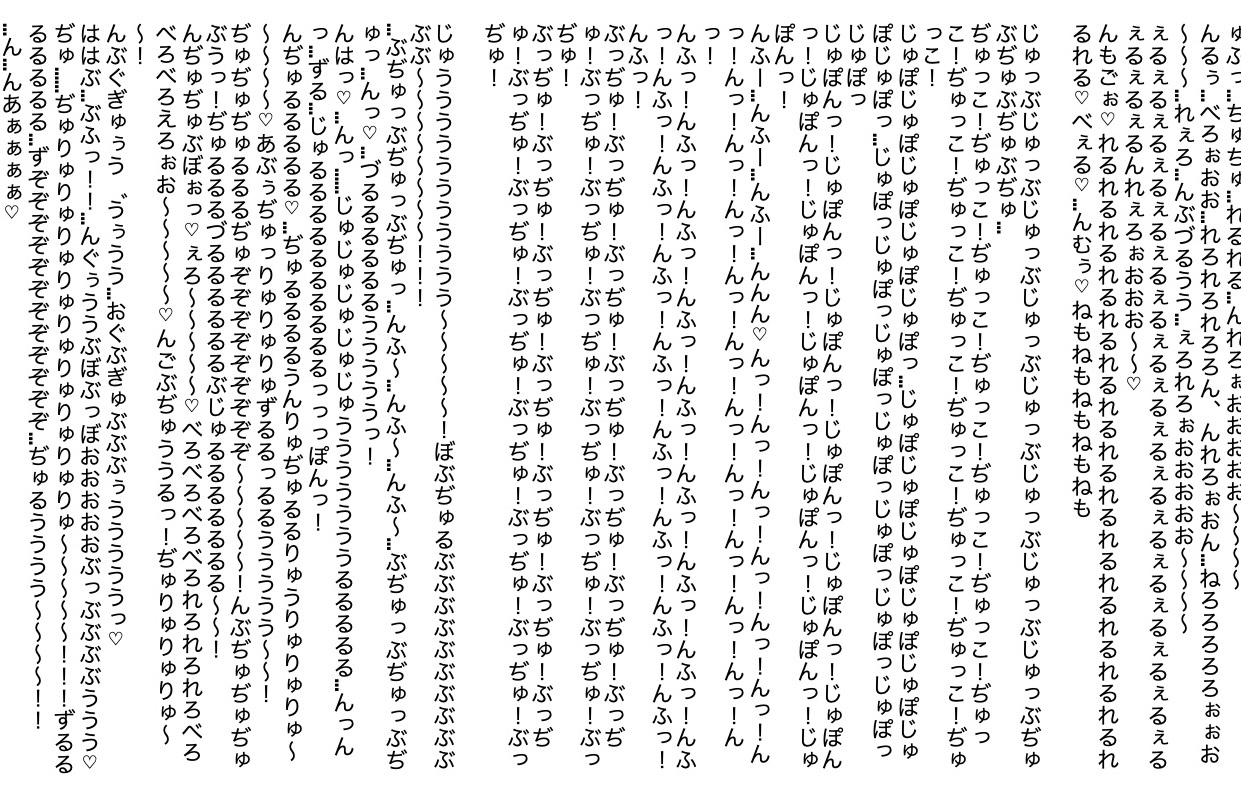 ゅぶっ…ちゅぢゅ…れるれる…んれろぉおおおおお～～～～
んるぅ…べろぉおお…れろれろれろん、んれろぉおん…ねろろろろろぉぉお
～～～…れぇろ…んぶづるうう…ぇろれろぉおおおおお～～～～
ぇるぇるぇるぇるぇるぇるぇるぇるぇるぇるぇるぇるぇるぇるぇるぇる
ぇるぇるぇるんれぇろぉおおお～～♡
んもごぉ♡れるれるれるれるれるれるれるれるれるれるれるれるれるれ
るれる♡べぇる♡…んむぅ♡ねもねもねもねもねも
じゅっぶじゅっぶじゅっぶじゅっぶじゅっぶじゅっぶじゅっぶじゅっぶぢゅ
ぶぢゅぶぢゅぶぢゅ…
ぢゅっこ！ぢゅっこ！ぢゅっこ！ぢゅっこ！ぢゅっこ！ぢゅっこ！ぢゅっ
こ！ぢゅっこ！ぢゅっこ！ぢゅっこ！ぢゅっこ！ぢゅっこ！ぢゅっこ！ぢゅ
っこ！
じゅぽじゅぽじゅぽじゅぽじゅぽっ…じゅぽじゅぽじゅぽじゅぽじゅぽじゅ
ぽじゅぽっ…じゅぽっじゅぽっじゅぽっじゅぽっじゅぽっじゅぽっじゅぽっ
じゅぽっ
じゅぽんっ！じゅぽんっ！じゅぽんっ！じゅぽんっ！じゅぽんっ！じゅぽん
っ！じゅぽんっ！じゅぽんっ！じゅぽんっ！じゅぽんっ！じゅぽんっ！じゅ
ぽんっ！
んふー…んふー…んふー…んんん♡んっ！んっ！んっ！んっ！んっ！んっ！ん
っ！んっ！んっ！んっ！んっ！んっ！んっ！んっ！んっ！んっ！んっ！ん
っ！
んふっ！んふっ！んふっ！んふっ！んふっ！んふっ！んふっ！んふっ！んふ
っ！んふっ！んふっ！んふっ！んふっ！んふっ！んふっ！んふっ！んふっ！
んふっ！
ぶっぢゅ！ぶっぢゅ！ぶっぢゅ！ぶっぢゅ！ぶっぢゅ！ぶっぢゅ！ぶっぢ
ゅ！ぶっぢゅ！ぶっぢゅ！ぶっぢゅ！ぶっぢゅ！ぶっぢゅ！ぶっぢゅ！ぶっ
ぢゅ！
ぶっぢゅ！ぶっぢゅ！ぶっぢゅ！ぶっぢゅ！ぶっぢゅ！ぶっぢゅ！ぶっぢ
ゅ！ぶっぢゅ！ぶっぢゅ！ぶっぢゅ！ぶっぢゅ！ぶっぢゅ！ぶっぢゅ！ぶっ
ぢゅ！
じゅううううううううううううう～～～～～！ぼぶぢゅるぶぶぶぶぶぶぶぶぶぶ
ぶぶ～～～～～～～～～！！！
…ぶぢゅっぶぢゅっぶぢゅっ…んふ～…んふ～…んふ～…ぶぢゅっぶぢゅっぶぢ
ゅっ…んっ♡…づるるるるるるるうううううっ！
んはっ♡…んっ……じゅじゅじゅじゅじゅうううううううるるるるるる…んっん
っ…ずる…じゅるるるるるるるるるるっっっぽんっ！
んぢゅるるるるるる♡…ぢゅるるるるるうんりゅぢゅるるりゅうりゅりゅりゅ～
～～～～♡あぶぅぢゅっりゅりゅりゅずるるっるるううううう～～～！
ぢゅぢゅぢゅるるるぢゅぞぞぞぞぞぞぞぞぞ～～～～～！んぶぢゅぢゅぢゅ
ぶうっ！ぢゅるるるづるるるるるるぶじゅるるるるるるるる～～！
んぢゅぢゅぶぼぉっ♡ぇろ～～～～～♡べろべろべろべろれろれろれろべろ
べろべろえろぉお～～～～～♡んごぶぢゅううるっ！ぢゅりゅりゅりゅりゅ～
～！
んぶぐぎゅぅう゛うぅうう…おぐぶぎゅぶぶぶぅううううううっ♡
ははぶ…ぶふっ！！…んぐぅううぶぼぶっぼおおおおおぶっぶぶぶぶううう♡
ぢゅ……ぢゅりゅりゅりゅりゅりゅりゅりゅりゅりゅ～～～～～～！！！ずるる
るるるるる…ずぞぞぞぞぞぞぞぞぞぞぞぞぞ…ぢゅるうううう～～～～～！！
…ん…んあぁぁぁぁ♡